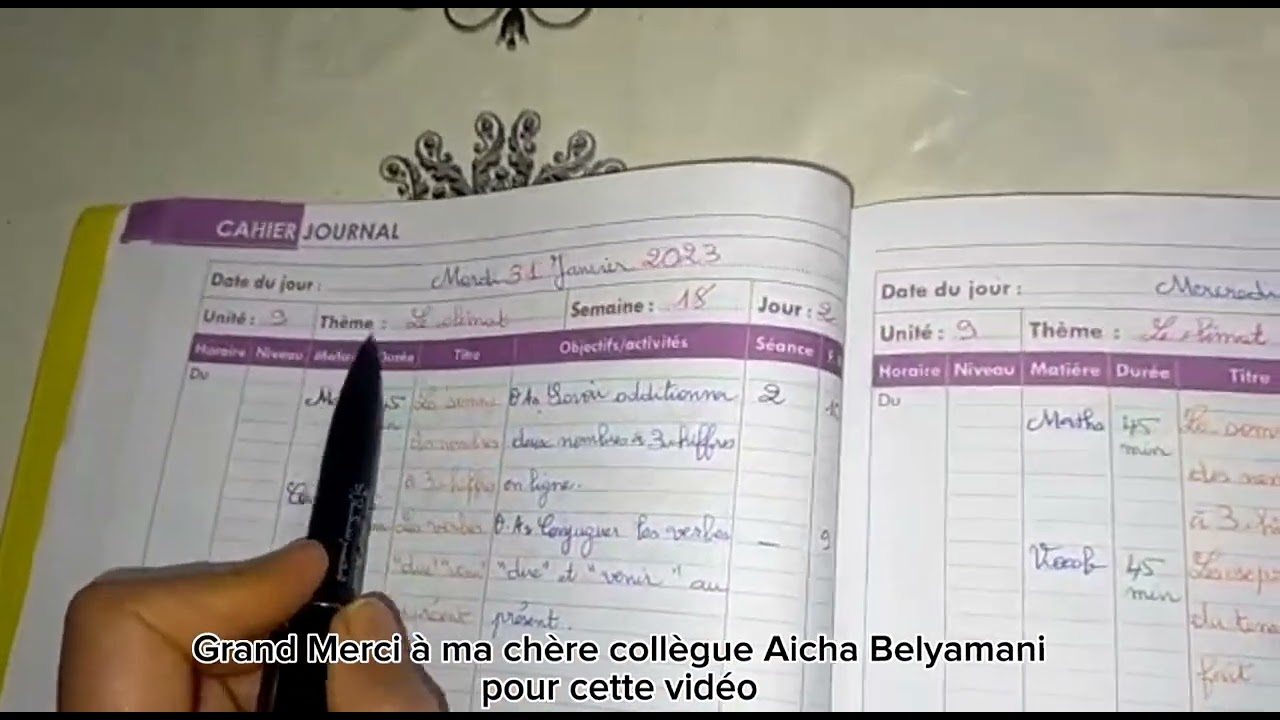 CAHIER JOURNAL
Date du jour : Mardi 31 Janvier 2023
Unité : 9 Thème : Le climat Semaine : 18 Jour : 2
Horaire Niveau Durée Titre Objectifs/activités Séance
Du 45 La somme O.A: Savoir additionner 2
des nombres deux nombres à 3 chiffres
à 3 chiffres en ligne.
Les verbes O.A: Conjuguer les verbes — 9
"dire" "venir" "dire" et "venir" au
présent présent.
Date du jour :
Unité : 9 Thème : Le climat
Horaire Niveau Matière Durée Titre
Du
Maths 45 La
min des
à 3
Vocab 45
min du
fait
Grand Merci à ma chère collègue Aicha Belyamani
pour cette vidéo